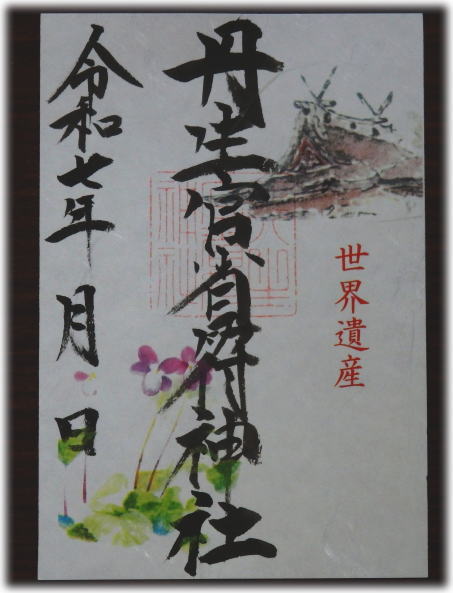 世界遺産
丹生官省符神社
令和七年 月 日